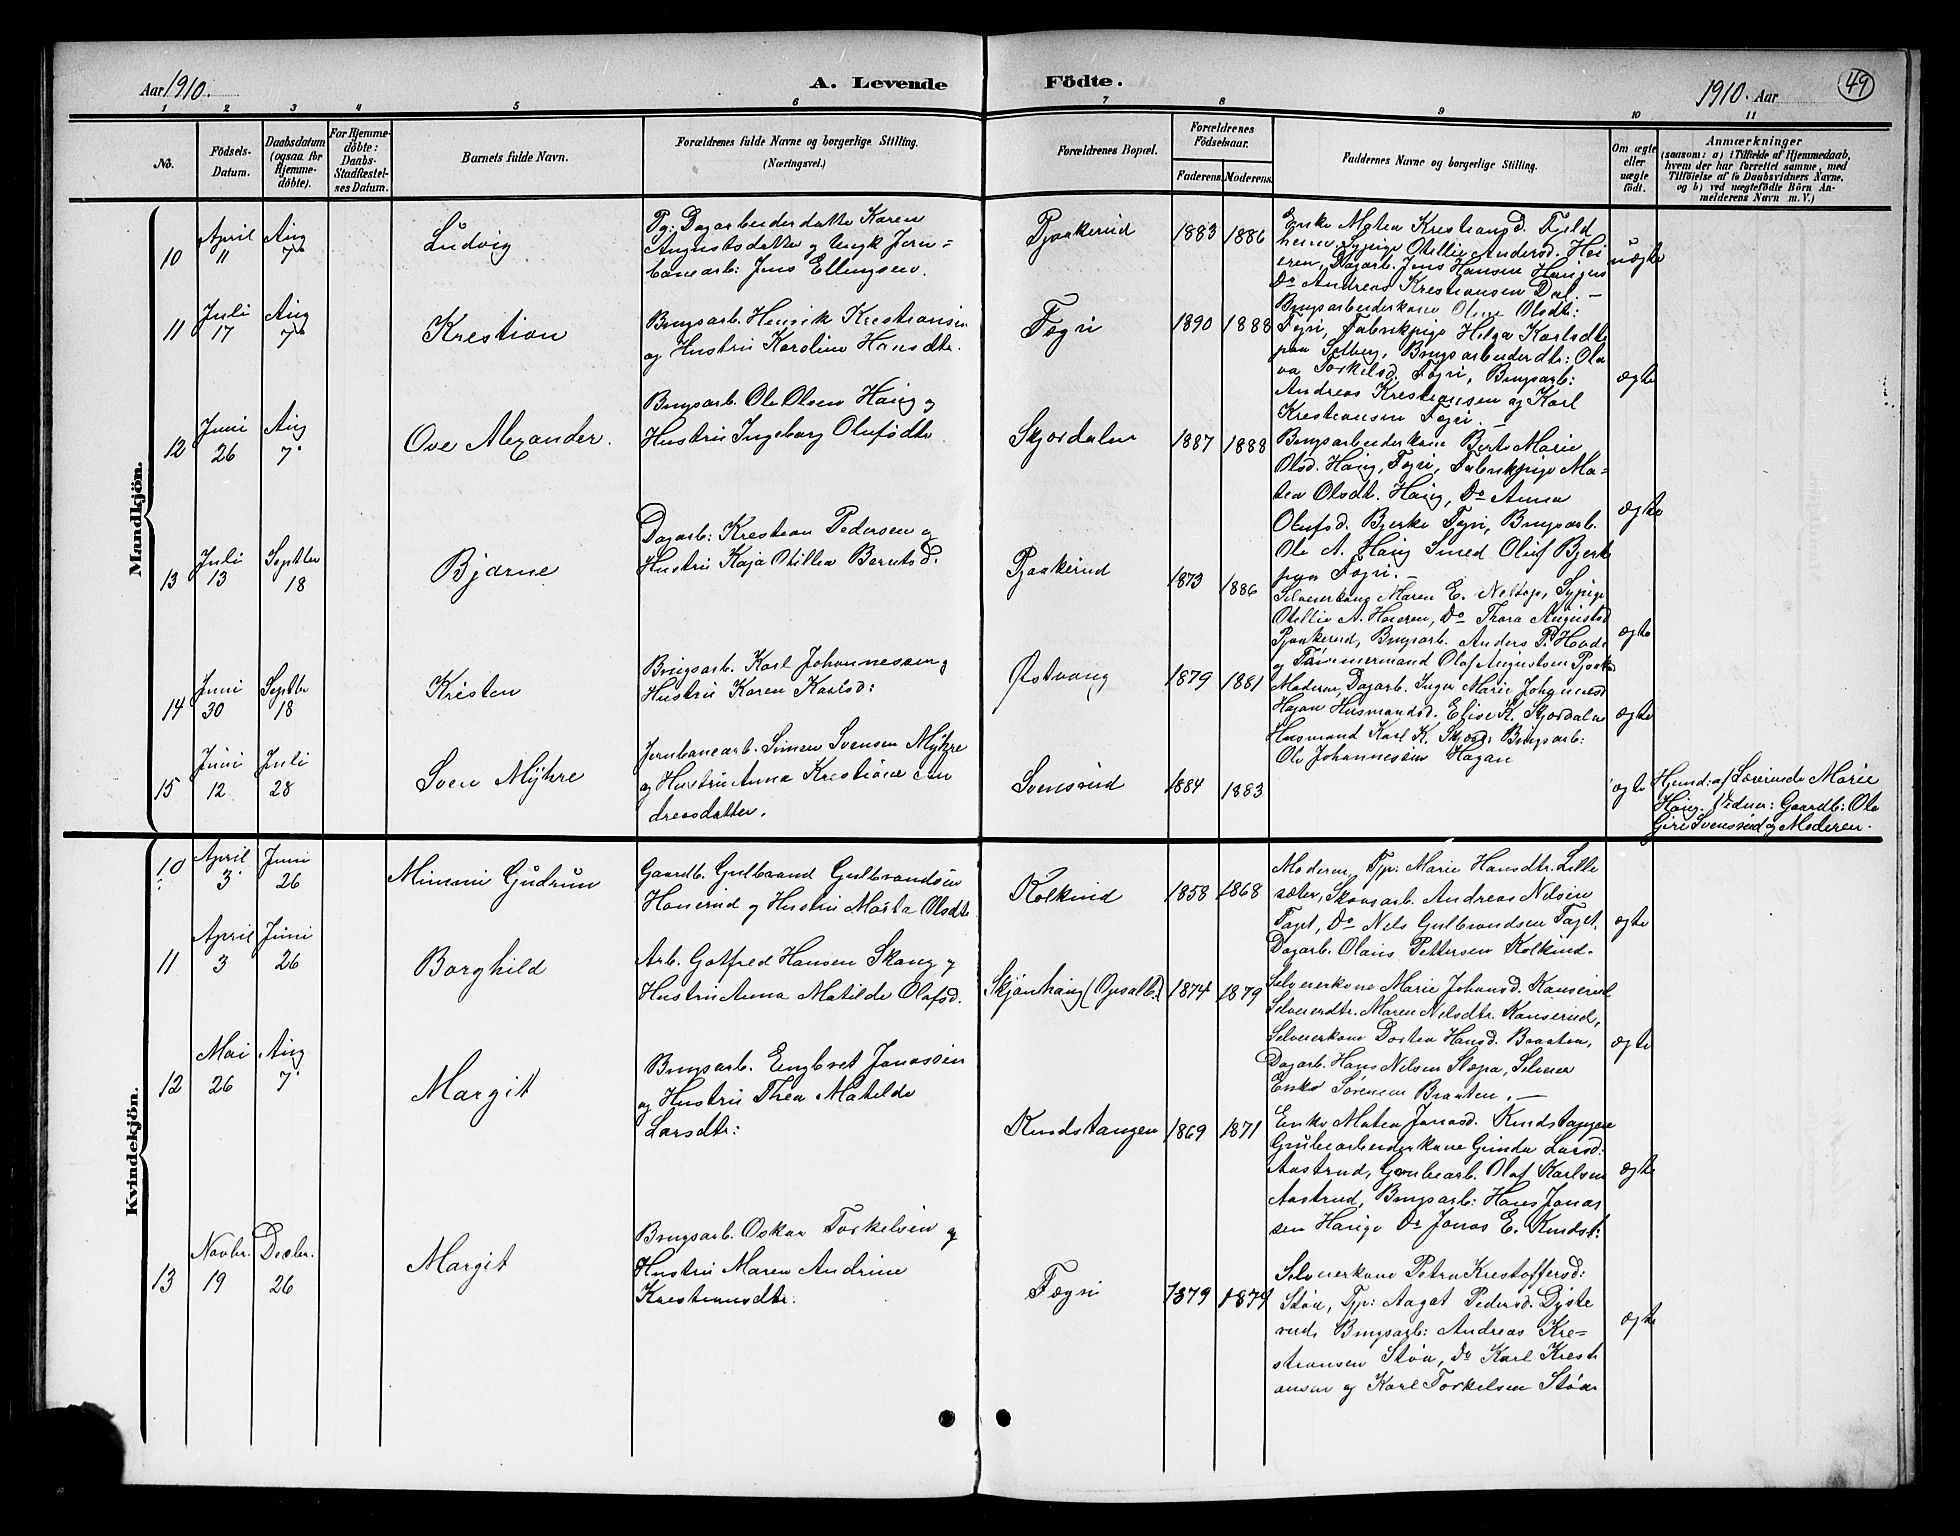 Aar 1910.
A. Levende Födte.
1910. Aar
49
1 2 3 4 5 6 7 8 9 10 11
Nö.
Födsels-Datum.
Daabsdatum (ogsaa for Hjemme-döbte).
For Hjemme-döbte: Daabs-Stadfæstel-ses Datum.
Barnets fulde Navn.
Forældrenes fulde Navne og borgerlige Stilling.
(Næringsvei.)
Forældrenes Bopæl.
Forældrenes Födselsaar.
Faderens. Moderens.
Faddernes Navne og borgerlige Stilling.
Om ægte eller uægte födt.
Anmærkninger
(saasom: a) i Tilfælde af Hjemmedaab,
hvem der har forrettet samme, med
Tilföielse af to Daabsvidners Navne,
og b) ved uægtefödte Börn An-
melderens Navn m. V.)
Mandkjön.
10
April 11
Aug 7de
Ludvig
Pg: Dagarbeiderdatte Karen
Augustsdatte og Ungk Jern=
banearb: Jens Ellingsen.
Pjaakerud
1883 1886
Enke Matea Krestiansd. Fjeld
heien, Sypige Otellie Andersd. Hei
eren, Dagarb. Jens Hansen
Do Andreas Krestiansen Dal. —
uægte
11
Juli 17
Aug 7de
Krestian
Brugsarb. Henrik Krestiansen
og Hustru Karoline Hansdtr.
Fægri
1890 1888
Brugsarbeiderkone Oline Olsdt:
Fægri, Fabrikpige Helga Karlsdtr
paa Solberg, Brugsarbeiderdtr: Ola
va Torkilsd. Fægri, Brugsarb:
Andreas Krestiansen og Karl
Krestiansen Fægri. —
ægte
12
Juni 26
Aug 7.
Ove Alexander.
Brugsarb. Ole Olsen Haug og
Hustru Ingeborg Olufsdtr
Skjordalen
1887 1888
Brugsarbeiderkone Berte Marie
Olsd. Haug, Fægri, Fabrikpige Ma=
tea Olsdt. Haug, Do Anna
Olufsd. Bjerke Fægri, Brugsarb.
Ole A. Haug Smed Oluf Bjerke
paa Fægri. —
ægte
13
Juli 13
Septbr 18
Bjarne
Dagarb: Krestian Pedersen og
Hustru Kaja Otillea Berntsd.
Pjaakerud
1873 1886
Selveierkone Maren E. Neltop, Sypige
Otellie A. Heieren, Do Thora Augustsd
Pjaakerud, Brugsarb. Anders P. Hovde
og Tømmermand Olaf Augustsen Pjaake
ægte
14
Juni 30
Septbr 18
Kristen
Brugsarb. Karl Johannessen og
Hustru Karen Karlsd:
Østvang
1879 1881
Moderen, Dagarb. Inger Marie Johannesd
Hagan Husmandsd. Elise K. Skjordalen
Husmand Karl K. Skjord: Brugsarb:
Ole Johannessen Hagan
ægte
15
Juni 12
Juli 28
Sven Myhre
Jernbanearb. Simen Svensen Myhre
og Hustru Anna Krestiane An
dreasdatter.
Svensrud
1884 1883
ægte
Hjemd: af Lærerinde Marie
Haug. Vidner: Gaardb: Ole
Svensrud og Moderen.
Kvindekjön.
10
April 3
Juni 26
Mimmi Gudrun
Gaardb. Gulbrand Gulbrandsen
Hanerud og Hustru Marta Olsdtr
Kolkind
1858 1868
Moderen, Tjp: Marie Hansdtr. Lille
sæter, Skovarb. Andreas Nilsen
Faget, Do Nels Gulbrandsen Faget,
Dagarb. Olaus Pettersen Kolkind.
ægte
11
April 3
Juni 26
Borghild
Arb. Gotfred Hansen Skaug og
Hustru Anna Matilde Olafsd.
Skjønhaug (Opsalb.)
1874 1879
Selveierkone Marie Johansd. Kanserud
Selveierdtr. Maren Nilsdtr. Kanserud,
Selveierkone Dortea Hansd. Braaten,
Dagarb. Hans Nilsen Slæpa, Selveier
Enke Sørensen Braaten. —
ægte
12
Mai 26
Aug 7.
Margit
Brugsarb. Engbret Jonassen
og Hustru Thea Matilde
Larsdtr:
Knudstangen
1869 1871
Enke Matea Jonasd. Knudstangen
Grubearbeiderkone Gunda Larsd:
Aastrud, Grubearb. Olaf Karlsen
Aastrud, Brugsarb: Hans Jonas
sen Hauge Do Jonas E. Knudst:
ægte
13
Novbr. 19
Decbr. 26
Margit
Brugsarb. Oskar Torkelsen og
Hustru Maren Andrine
Krestiansdtr.
Fægri
1879 1874
Selveierkone Petra Krestoffersd:
Støa, Tjp: Aagot Pedersd. Dyste
rud, Brugsarb: Andreas Kre=
stiansen Støa, do Karl Kresti
ansen og Karl Torkelsen Støa
ægte